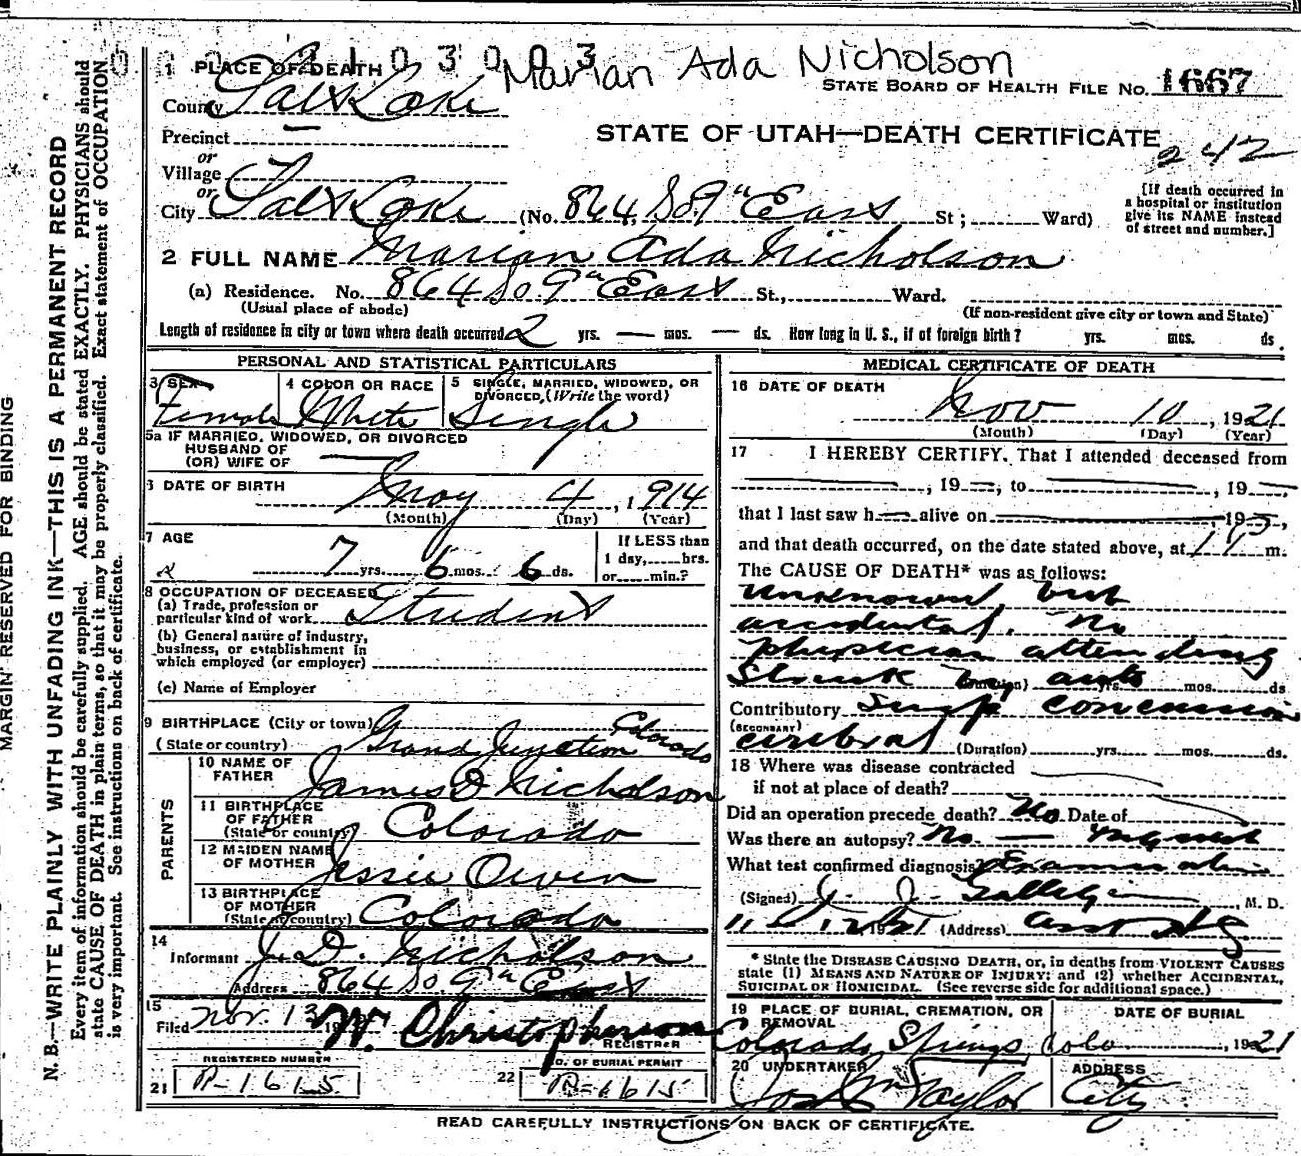 2 1 0 3 0 0 3
Marian Ada Nicholson
1 PLACE OF DEATH
STATE BOARD OF HEALTH FILE No. 1667
County Salt Lake
Precinct —
STATE OF UTAH—DEATH CERTIFICATE
242
or
Village
or
City Salt Lake (No. 864 So. 9th East St; Ward)
[If death occurred in
a hospital or institution
give its NAME instead
of street and number.]
2 FULL NAME Marian Ada Nicholson
(a) Residence. No. 864 So. 9th East St., Ward.
(Usual place of abode) (If non-resident give city or town and State)
Length of residence in city or town where death occurred 2 yrs. — mos. — ds. How long in U. S., if of foreign birth? yrs. mos. ds.
PERSONAL AND STATISTICAL PARTICULARS
3 SEX Female
4 COLOR OR RACE White
5 SINGLE, MARRIED, WIDOWED, OR
DIVORCED, (Write the word)
Single
5a IF MARRIED, WIDOWED, OR DIVORCED
HUSBAND OF
(OR) WIFE OF —
6 DATE OF BIRTH May 4, 1914
(Month) (Day) (Year)
7 AGE
7 yrs. 6 mos. 6 ds.
If LESS than
1 day, hrs.
or min.?
8 OCCUPATION OF DECEASED
(a) Trade, profession or
particular kind of work Student
(b) General nature of industry,
business, or establishment in
which employed (or employer)
(c) Name of Employer
9 BIRTHPLACE (City or town) Grand Junction Colorado
(State or country)
PARENTS
10 NAME OF
FATHER James D Nicholson
11 BIRTHPLACE
OF FATHER
(State or country) Colorado
12 MAIDEN NAME
OF MOTHER Jessie Owen
13 BIRTHPLACE
OF MOTHER
(State or country) Colorado
14
Informant J. D. Nicholson
Address 864 So. 9th East
15
Filed Nov. 13 19 W. Christopherson
REGISTRAR
REGISTERED NUMBER
21 R-1615
NO. OF BURIAL PERMIT
22 R-1615
MEDICAL CERTIFICATE OF DEATH
16 DATE OF DEATH
Nov 10, 1921
(Month) (Day) (Year)
17 I HEREBY CERTIFY, That I attended deceased from
—, 19—, to —, 19—,
that I last saw h— alive on —, 19—,
and that death occurred, on the date stated above, at m.
The CAUSE OF DEATH* was as follows:
Unknown, but
accidental. No
physician attending
Struck by auto
(Duration) yrs. mos. ds
Contributory concussion
(SECONDARY)
cerebral (Duration) yrs. mos. ds.
18 Where was disease contracted
if not at place of death?
Did an operation precede death? No Date of
Was there an autopsy? No —
What test confirmed diagnosis? Examination
(Signed) J. J. M. D.
(Address)
* State the DISEASE CAUSING DEATH, or, in deaths from VIOLENT CAUSES
state (1) MEANS AND NATURE OF INJURY; and (2) whether ACCIDENTAL,
SUICIDAL OR HOMICIDAL. (See reverse side for additional space.)
19 PLACE OF BURIAL, CREMATION, OR
REMOVAL
Colorado Springs Colo
DATE OF BURIAL
, 1921
20 UNDERTAKER
Jos Wm Taylor
ADDRESS
City
READ CAREFULLY INSTRUCTIONS ON BACK OF CERTIFICATE.
MARGIN RESERVED FOR BINDING
N. B.—WRITE PLAINLY WITH UNFADING INK—THIS IS A PERMANENT RECORD
Every item of information should be carefully supplied. AGE should be stated EXACTLY. PHYSICIANS should
state CAUSE OF DEATH in plain terms, so that it may be properly classified. Exact statement of OCCUPATION
is very important. See instructions on back of certificate.